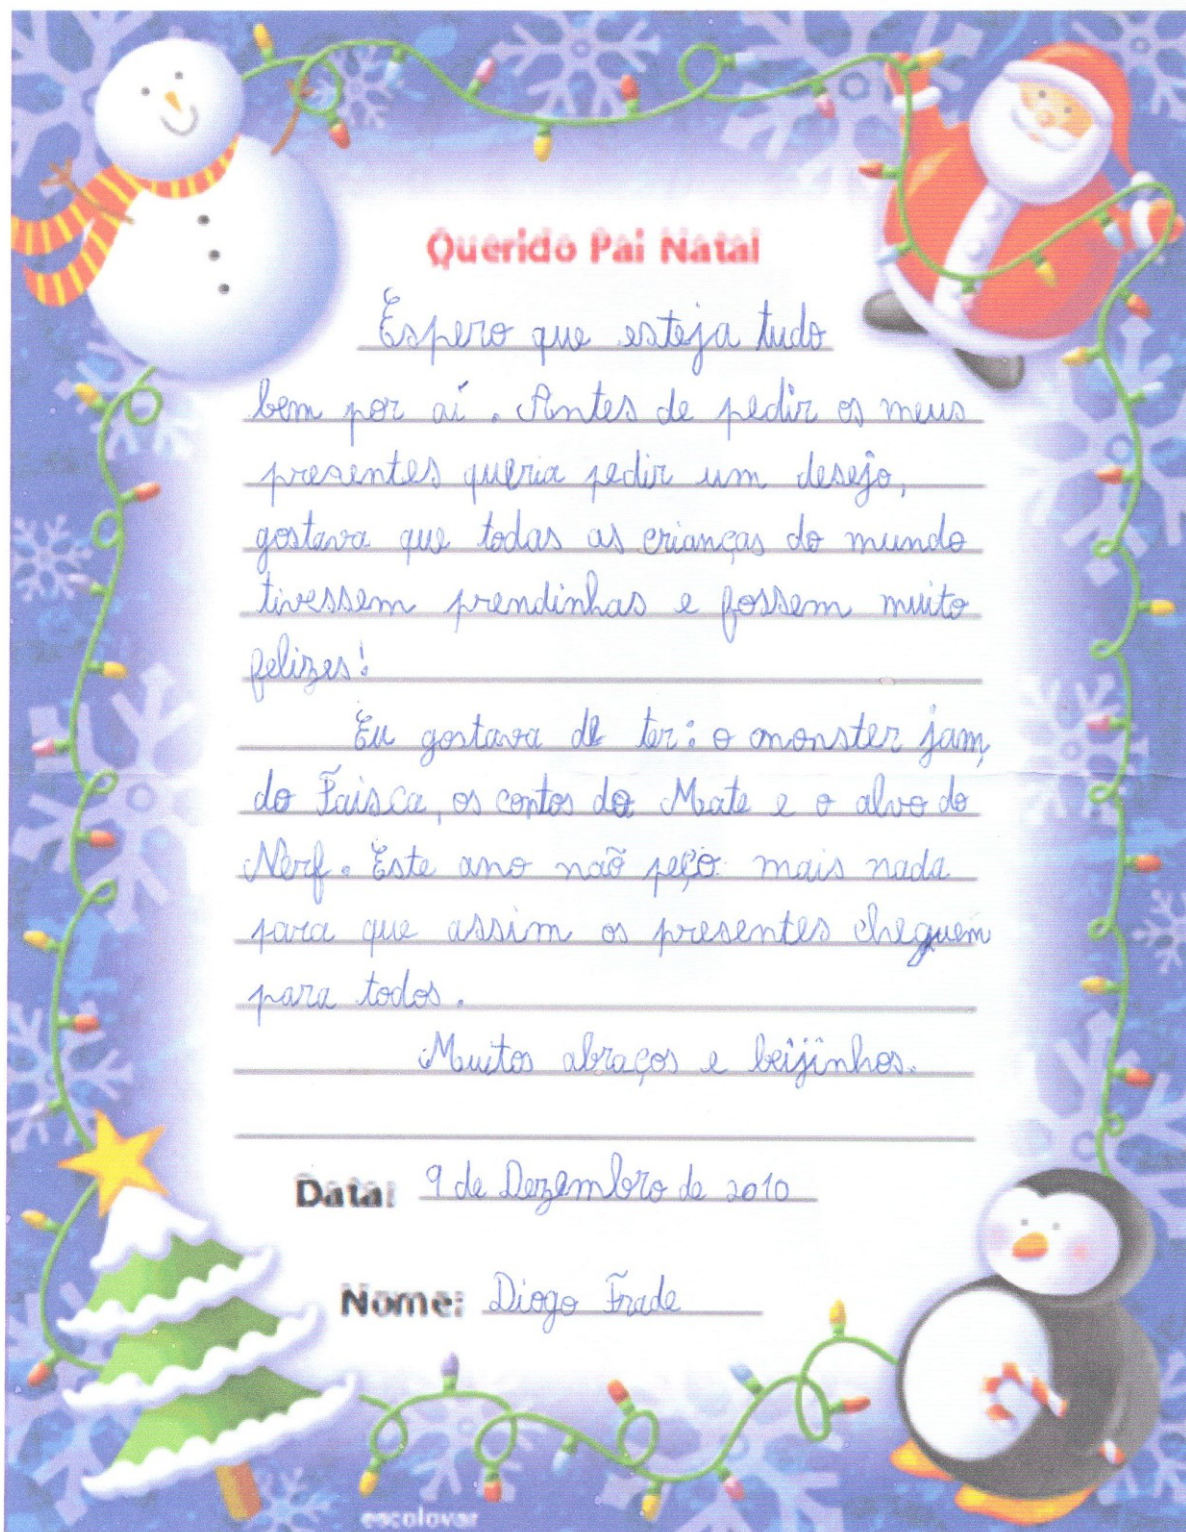 Querido Pai Natal
Espero que esteja tudo
bem por aí. Antes de pedir os meus
presentes queria pedir um desejo,
gostava que todas as crianças do mundo
tivessem prendinhas e fossem muito
felizes!
Eu gostava de ter: o monster jam,
do Faisca, os contos do Mate e o alvo do
Nerf. Este ano não peço mais nada
para que assim os presentes cheguem
para todos.
Muitos abraços e beijinhos.
Data: 9 de Dezembro de 2010
Nome: Diogo Frade
escolovar